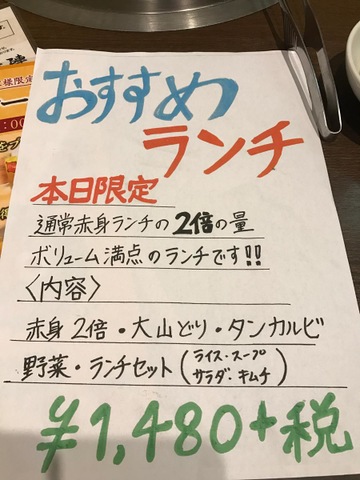 おすすめ
ランチ
本日限定
通常赤身ランチの2倍の量
ボリューム満点のランチです!!
〈内容〉
赤身2倍・大山どり・タンカルビ
野菜・ランチセット(ライス・スープ
サラダ・キムチ)
¥1,480+税
様限定